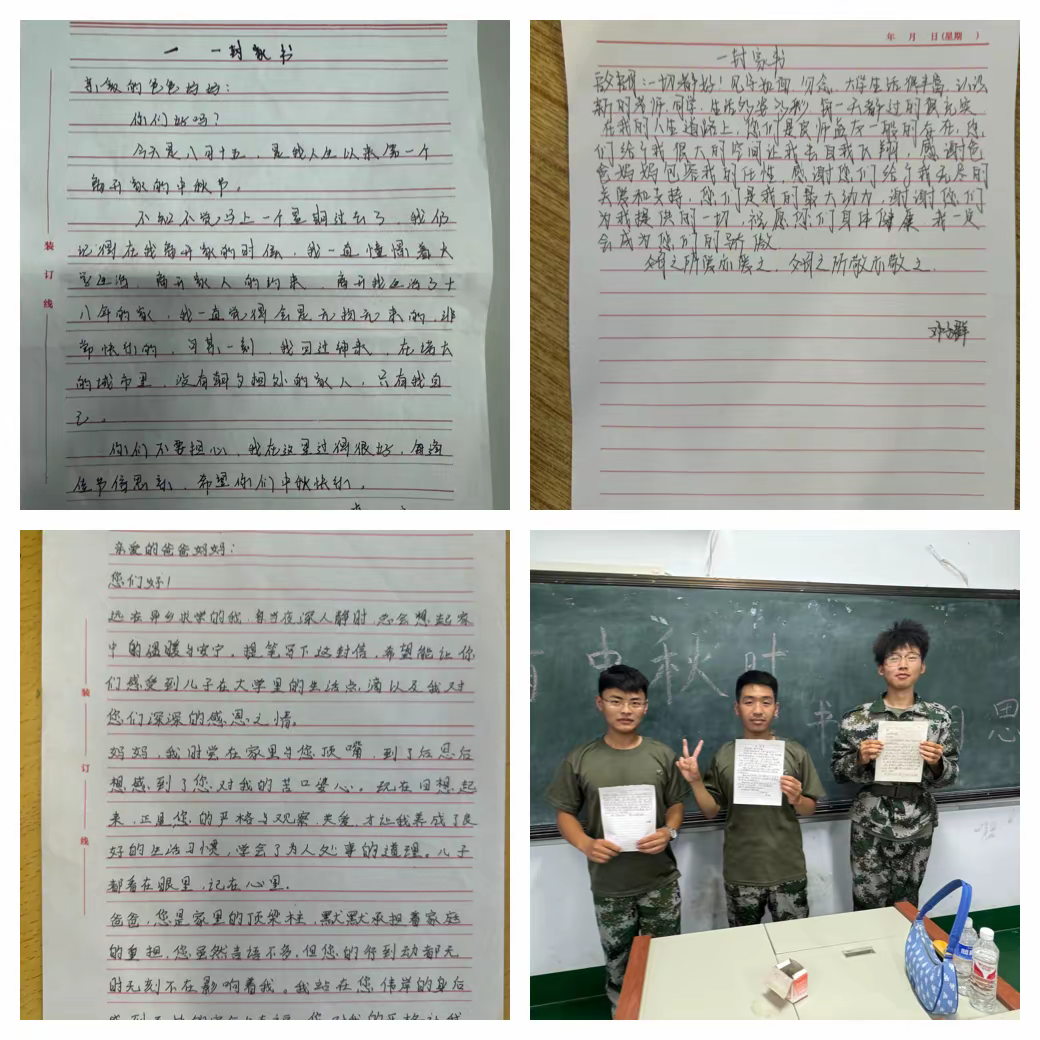 一 一封家书
亲敬的爸爸妈妈：
你们好吗？
今天是八月十五，是我人生以来第一个
离开家的中秋节。
不知不觉马上一个星期过去了，我仍
记得在我离开家的时候，我一直憧憬着大
学生活，离开家人的约束，离开我生活了十
八年的家，我一直觉得会是无拘无束的，非
常快乐的，可某一刻，我回过神来，在偌大
的城市里，没有朝夕相处的家人，只有我自
己。
你们不要担心，我在这里过得很好，每逢
佳节倍思亲，希望你们中秋快乐。
装
订
线
年 月 日(星期 )
一封家书
敬启：一切都好！见字如面 勿念，大学生活很丰富，认识
新的老师，同学，生活的多姿多彩 每一天都过的很充实
在我的人生道路上，您们是良师益友一般的存在，您
们给了我很大的空间让我去自我飞翔，感谢爸
爸妈妈包容我的任性，感谢您们给了我无尽的
关爱和支持，您们是我的最大动力，谢谢您们
为我提供的一切，祝愿您们身体健康 我一定
会成为您们的骄傲
父母之所爱亦爱之，父母之所敬亦敬之.
亲爱的爸爸妈妈：
您们好！
远在异乡求学的我，每当夜深人静时，总会想起家
中的温暖与安宁。提笔写下这封信，希望能让你
们感受到儿子在大学里的生活点滴以及我对
您们深深的感恩之情。
妈妈，我时常在家里与您顶嘴，到了后思后
想感到了您对我的苦口婆心。现在回想起
来，正是您的严格与观察，关爱，才让我养成了良
好的生活习惯，学会了为人处事的道理。儿子
都看在眼里，记在心里.
爸爸，您是家里的顶梁柱，默默承担着家庭
的重担，您虽然言语不多，但您的行动都无
时无刻不在影响着我。我站在您伟岸的身后
装
订
线
中秋时
书 思